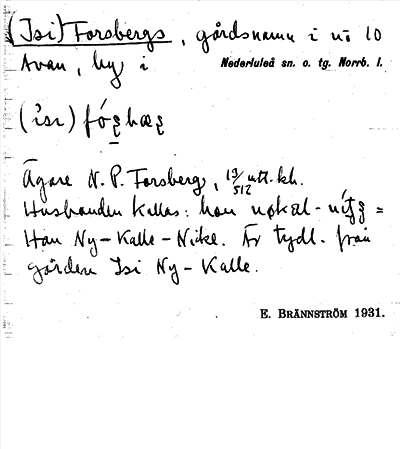 (Isi) Forsbergs, gårdsnamn i nr 10
Avan, by i Nederluleå sn. o. tg. Norrb. l.
Ägare N. P. Forsberg, 19/512 mtl. kh.
Husbonden kallas: han
Han Ny-Kalle-Nicke. Är tydl. från
gården Isi Ny-Kalle.
E. BRÄNNSTRÖM 1931.